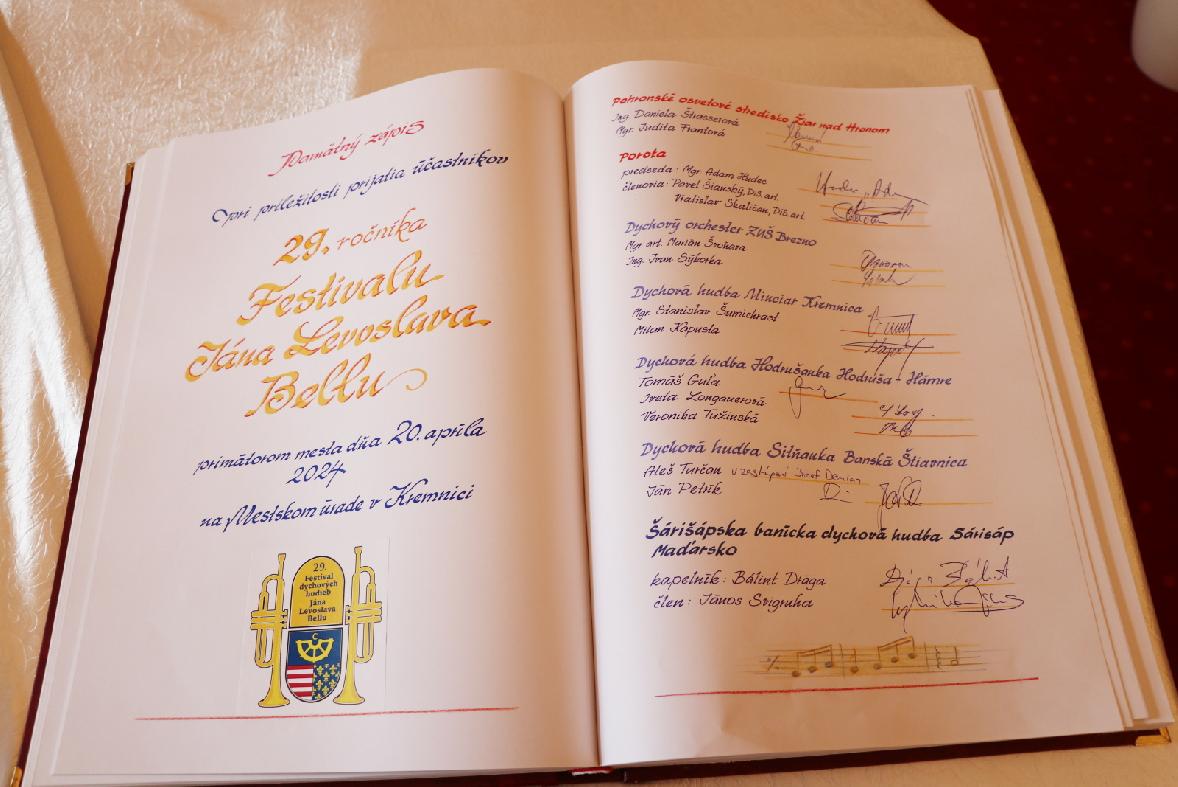 Pamätný zápis
pri príležitosti prijatia účastníkov
29. ročníka
Festivalu
Jána Levoslava
Bellu
primátorom mesta dňa 20. apríla
2024
na Mestskom úrade v Kremnici
29.
Festival
dychových
hudieb
Jána
Levoslava
Bellu
Pohronské osvetové stredisko Žiar nad Hronom
Ing. Daniela
Mgr. Judita
Porota
predseda: Mgr. Adam Hudec
členovia: Pavel Šianský, DiS. art.
Vladislav Skaličan, DiS. art.
Dychový orchester ZUŠ Brezno
Mgr. art. Marián Švoňara
Ing. Ivan
Dychová hudba Minciar Kremnica
Mgr. Stanislav Šumichrast
Milan Kapusta
Dychová hudba Hodrušanka Hodruša - Hámre
Tomáš Guľa
Iveta Longauerová
Veronika Tužinská
Dychová hudba Sitňanka Banská Štiavnica
Aleš Turčan v zastúpení Jozef Demian
Ján Petrík
Šárišápska banícka dychová hudba Sárisáp
Maďarsko
kapelník: Bálint Draga
člen: János Svigruha